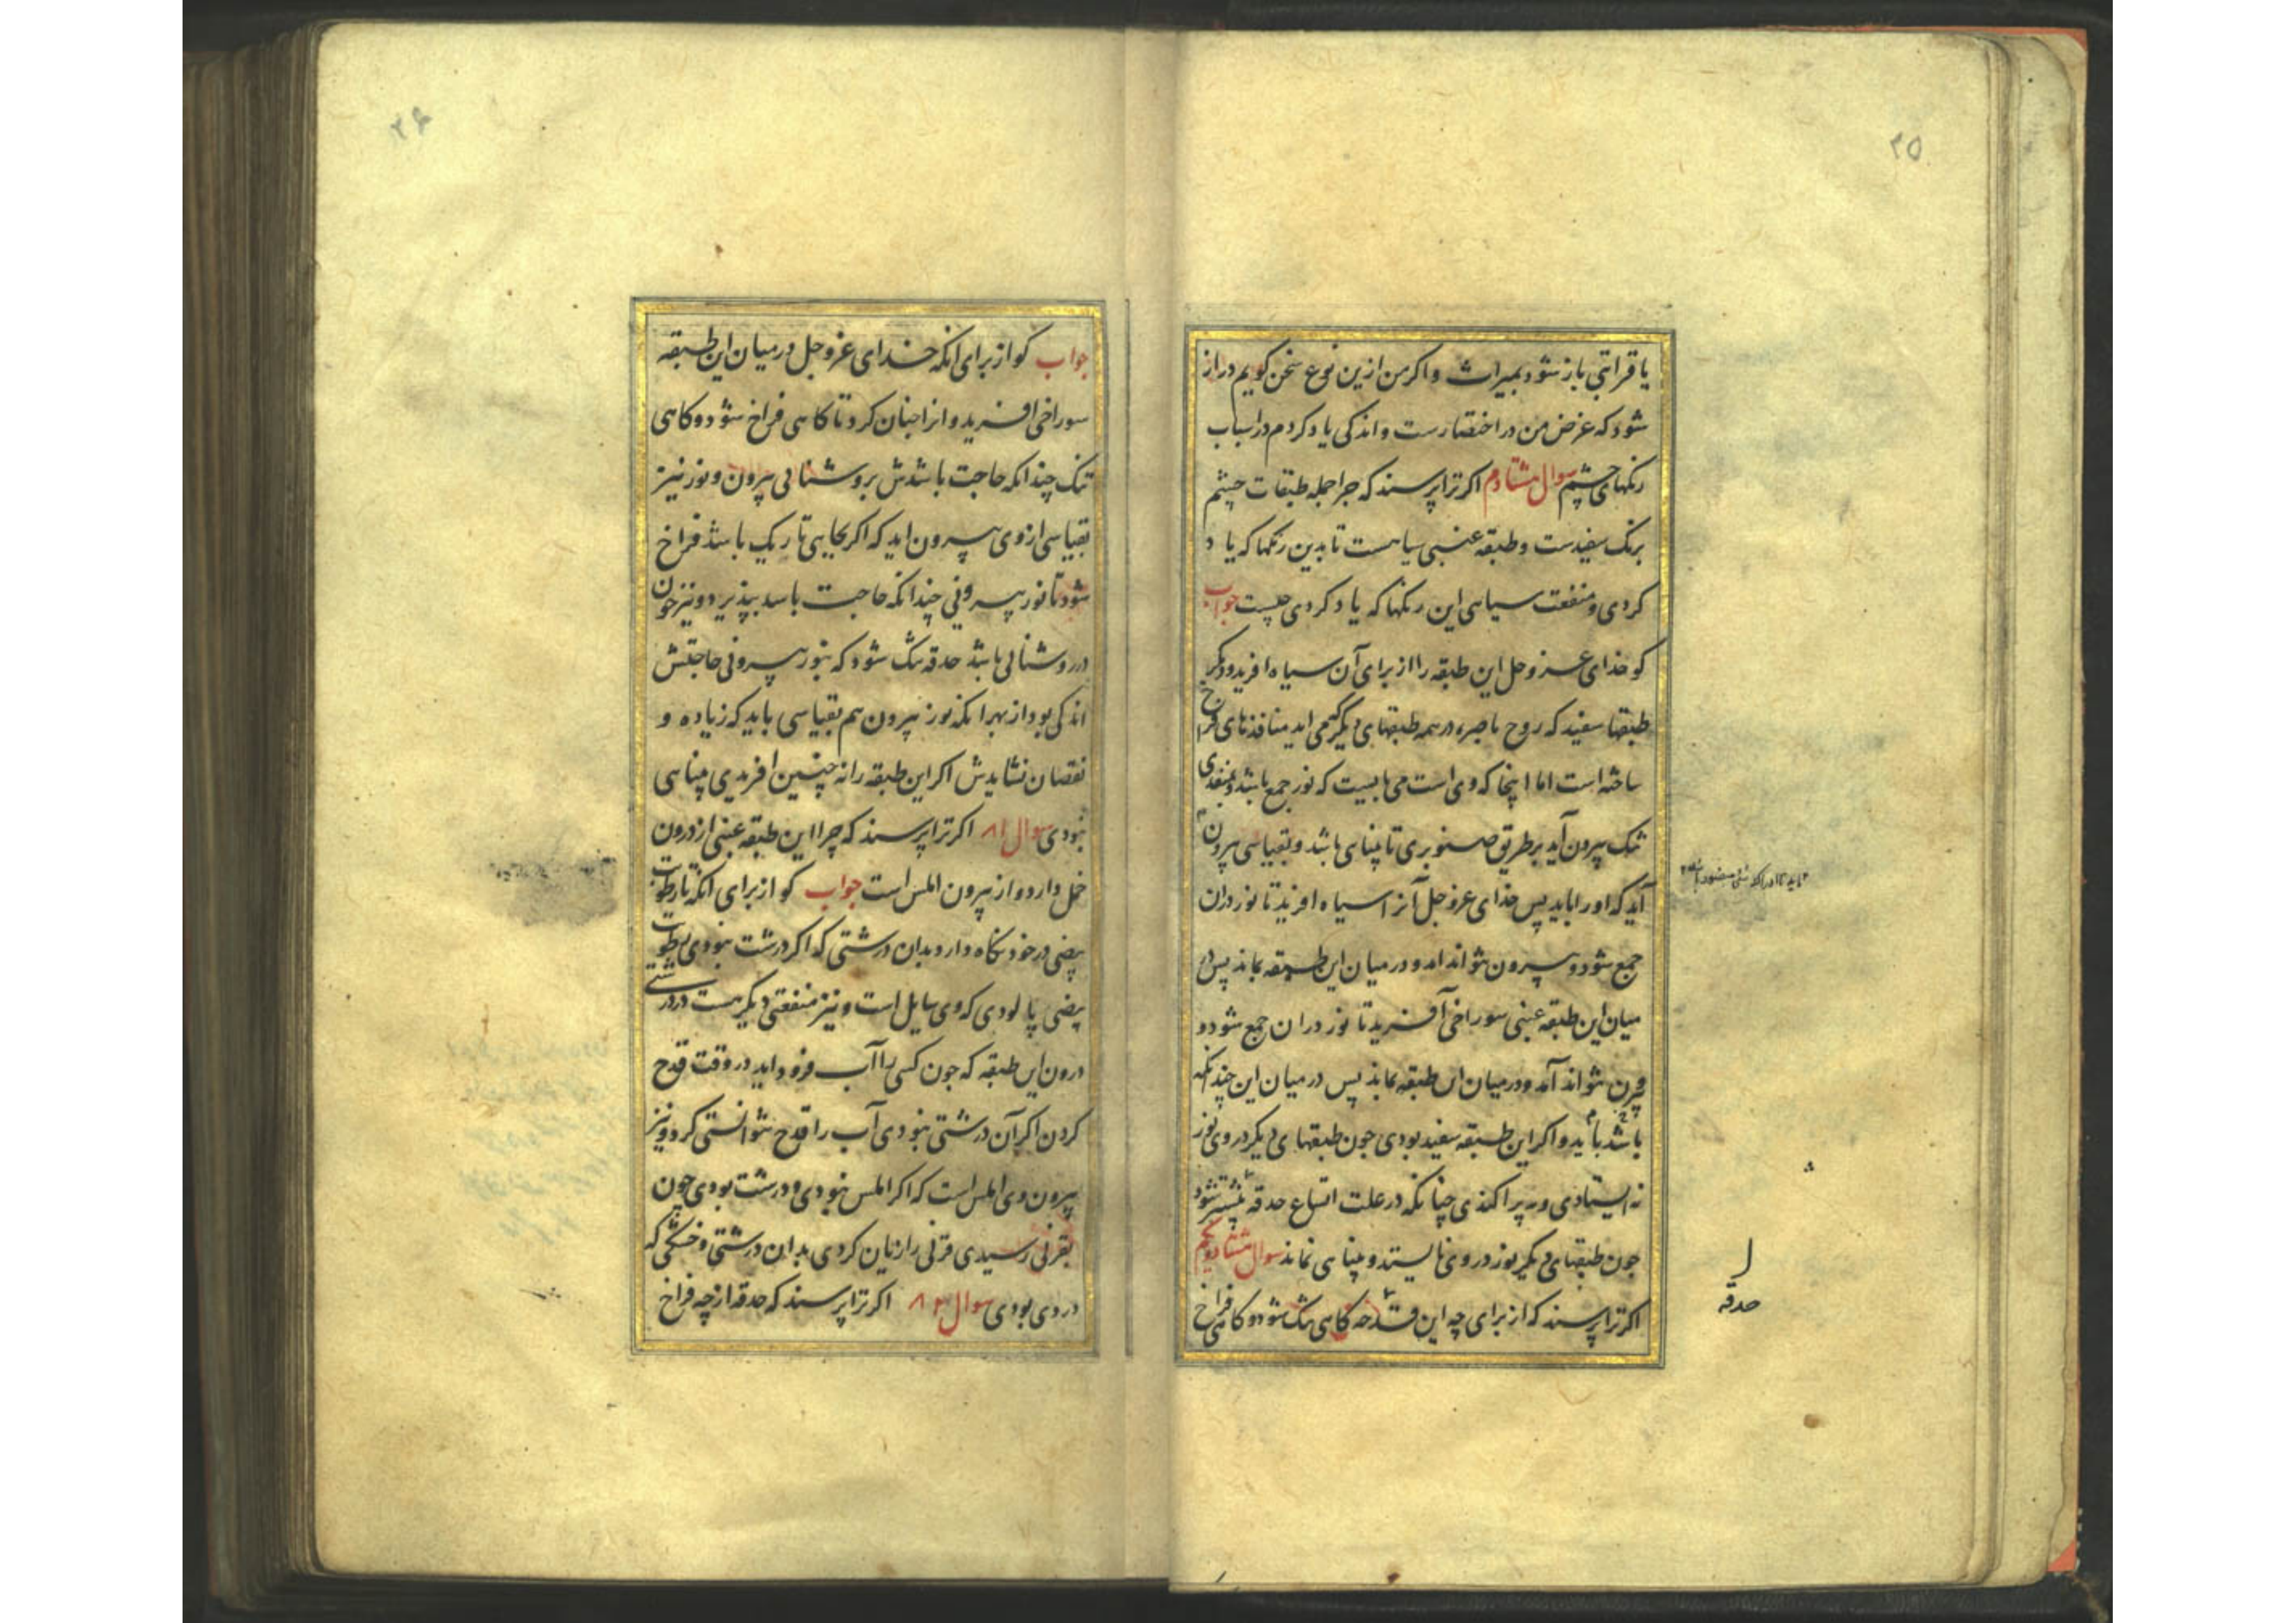 ۲۵
یا قرابتی باز شود بمیراث و اکر من ازین نوع سخن کویم دراز
شود که غرض من در اختصارست و اندکی یاد کردم در اسباب
رنکهای چشم سوال هشتادم اکر ترا پرسند که چرا جمله طبقات چشم
برنک سفیدست و طبقه عنبی سیاهست تا بدین رنکها که یاد
کردی و منفعت سیاهی این رنکها که یاد کردی چیست جواب
کو خدای عز وجل این طبقه را از برای آن سیاه افرید و دیکر
طبقها سفید که روح باصره در همه طبقهای دیکر می اید منافذهای فراخ
ساخته است اما اینجا که وی است می بایست که نور جمع باشد و بمنفذی
تنک بیرون آید بر طریق صنوبری تا بینای باشد و بقیاسی بیرون
آید که اورا باید پس خدای عز وجل آنرا سیاه افرید تا نور دران
جمع شود و بیرون نتواند امد و در میان این طبقه بماند پس در
میان این طبقه عنبی سوراخی آفرید تا نور دران جمع شود و
بیرون نتواند آمد و در میان این طبقه بماند پس در میان این چندانکه
باشد باید و اکر این طبقه سفید بودی جون طبقهای دیکر در وی نور
نه ایستادی و به پراکندی چنانکه در علت اتساع حدقه منتشر شود
جون طبقهای دیکر نور در وی نایستد و بینایی نماند سوال هشتاد و یکم
اکر ترا پرسند که از برای چه این حدقه کاهی تنک شود و کاهی فراخ
حدقه
۲۶
جواب کو از برای انکه خدای عز وجل در میان این طبقه
سوراخی افرید و انرا جنان کرد تا کاهی فراخ شود و کاهی
تنک چندانکه حاجت باشدش بروشنائی بیرون و نور نیز
بقیاسی از وی بیرون اید که اکر بجایی تاریک باشد فراخ
شود تا نور بیرونی چندانکه حاجت باشد بپذیرد و نیز جون
در روشنائی باشد حدقه تنک شود که بنور بیرونی حاجتش
اندکی بود از بهر انکه نور بیرون هم بقیاسی باید که زیاده و
نقصان نشایدش اکر این طبقه را نه چنین افریدی بینایی
نبودی سوال ۸۱ اکر ترا پرسند که چرا این طبقه عنبی از درون
خمل دارد و از بیرون املس است جواب کو از برای انکه تا رطوبت
بیضی در خود نکاه دارد بدان درشتی که اکر درشت نبودی رطوبت
بیضی پالودی که وی سایل است و نیز منفعتی دیکر هست در درشتی
درون این طبقه که جون کسی را آب فرود اید در وقت قدح
کردن اکر آن درشتی نبودی آب را قدح نتوانستی کرد و نیز
بیرون وی املس است که اکر املس نبودی و درشت بودی جون
بقرنی رسیدی قرنی را زیان کردی بدان درشتی و خشکی که
در وی بودی سوال ۸۲ اکر ترا پرسند که حدقه از چه فراخ